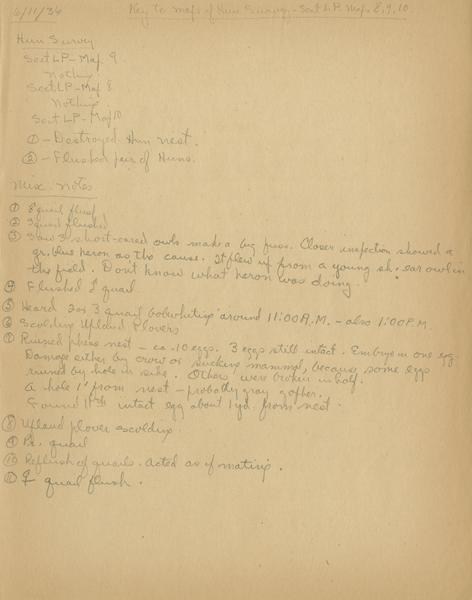 6/11/36 Key to maps of Hun Survey - Sect L.P. Map 8, 9, 10
Hun Survey
Sect LP - Map 9
Nothing
Sect LP - Map 8
Nothing
Sect LP - Map 10
① - Destroyed Hun nest.
② - Flushed pair of Huns.
Misc. Notes
① quail flush
② quail flushed
③ Saw 3 short-eared owls make a big fuss. Closer inspection showed a
gr. blue heron as the cause. It flew up from a young sh. ear owl in
the field. Don't know what heron was doing.
④ Flushed 1 quail
⑤ Heard 2 or 3 quail bobwhiting around 11:00 A.M. - also 1:00 P.M.
⑥ Scolding Upland Plovers
⑦ Ruined pheas nest - ca. 10 eggs. 3 eggs still intact. Embryo in one egg.
Damage either by crow or sucking mammal, because some eggs
ruined by hole in side. Others were broken in half.
A hole 1' from nest - probably gray gopher.
Found 11th intact egg about 1 yd. from nest.
⑧ Upland plover scolding.
⑨ Pr. quail
⑩ Reflush of quails. Acted as if mating.
⑪ ♀ quail flush.